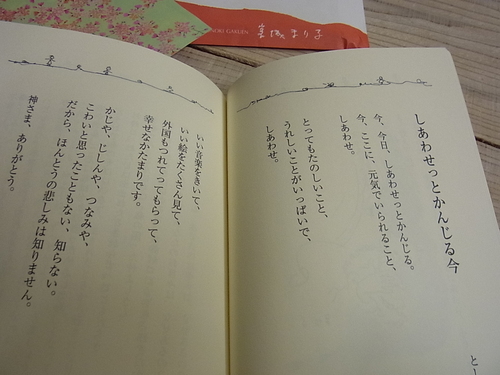 宮城まり子
しあわせっとかんじる今
今、今日、しあわせっとかんじる。
今、ここに、元気でいられること、
しあわせ。
とってもたのしいこと、
うれしいことがいっぱいで、
しあわせ。
いい音楽をきいて、
いい絵をたくさん見て、
外国もつれてってもらって、
幸せなかたまりです。
かじや、じしんや、つなみや、
こわいと思ったこともない、知らない。
だから、ほんとうの悲しみは知りません。
神さま、ありがとう。